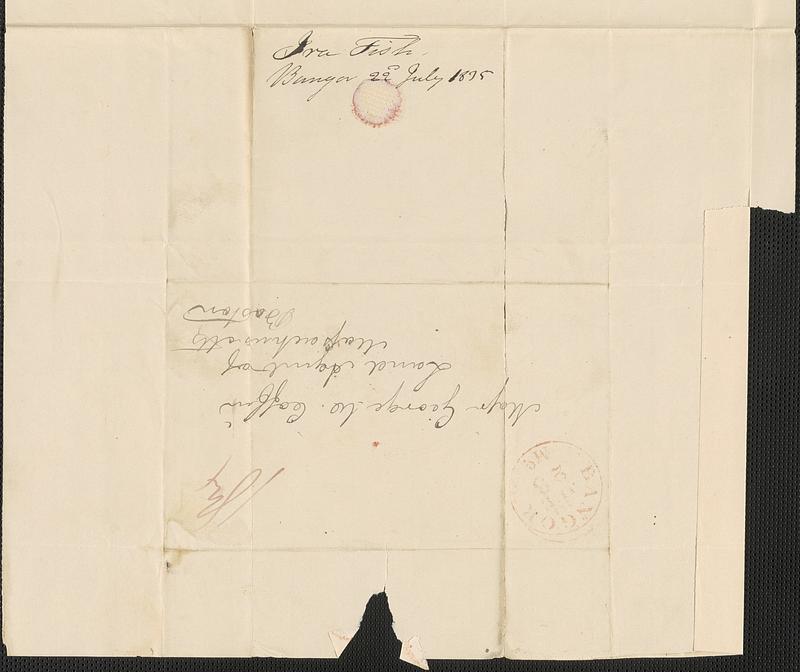 Ira Fish.
Bangor 22d July 1835
Majr George W. Coffin
Land Agent of
Massachusetts
Boston
18¾
BANGOR
Me
JUL